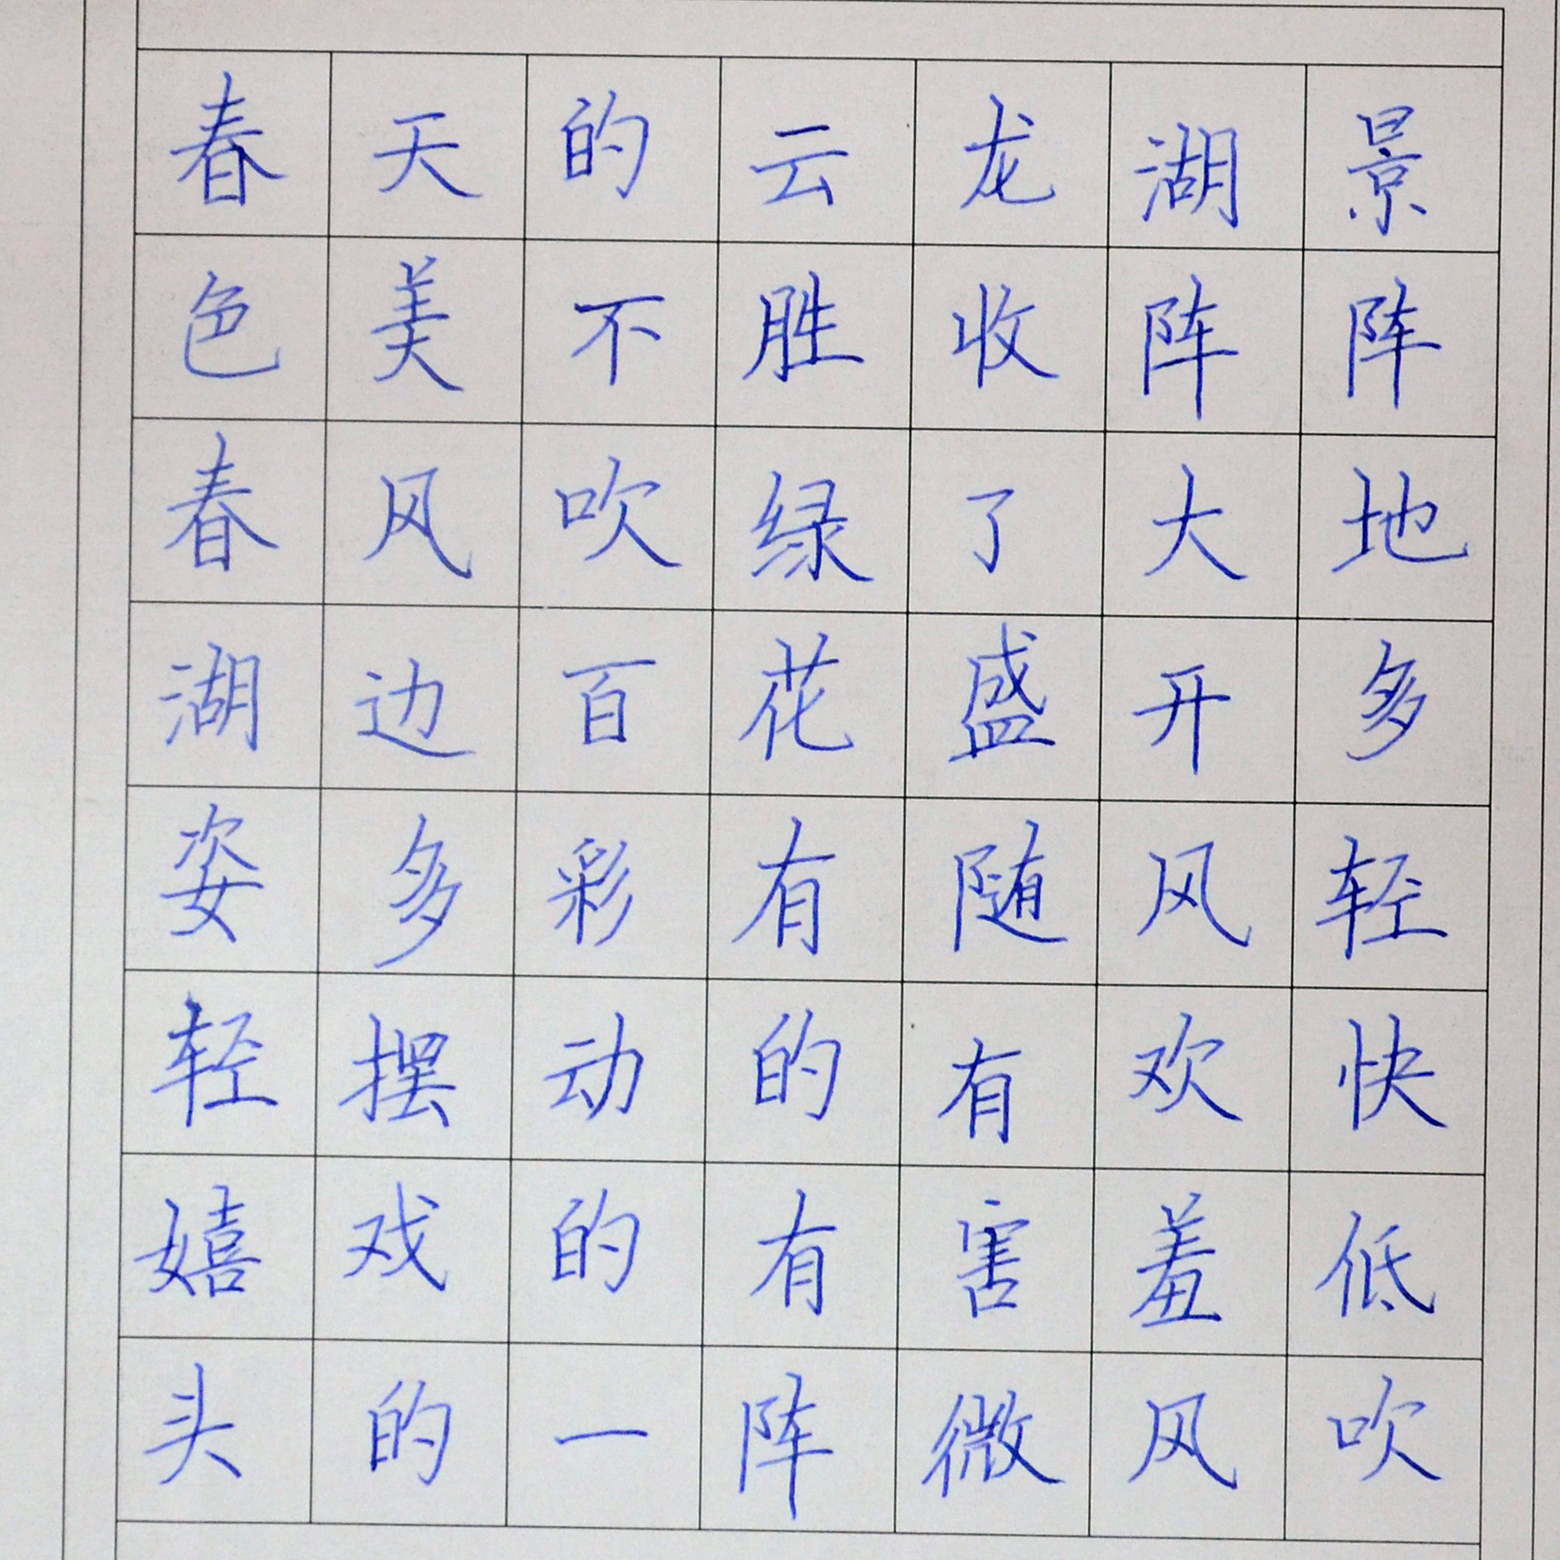 春天的云龙湖景
色美不胜收阵阵
春风吹绿了大地
湖边百花盛开多
姿多彩有随风轻
轻摆动的有欢快
嬉戏的有害羞低
头的一阵微风吹